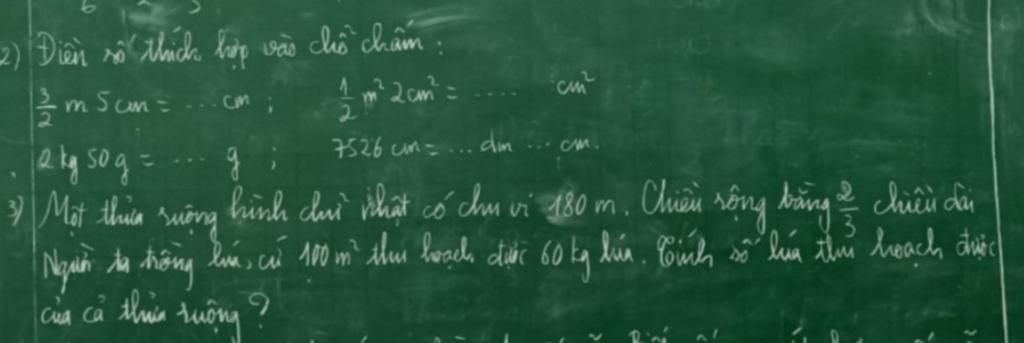 2) Điền số thích hợp vào chỗ chấm:
3/2 m 5 cm = ... cm ; 1/2 m² 2cm² = .... cm²
2 kg 50 g = ... g ; 7526 cm = ... dm ... cm.
3) Một thửa ruộng hình chữ nhật có chu vi 180 m. Chiều rộng bằng 2/3 chiều dài
Người ta trồng lúa, cứ 100 m² thu hoạch được 60 kg lúa. Tính số lúa thu hoạch được
của cả thửa ruộng?